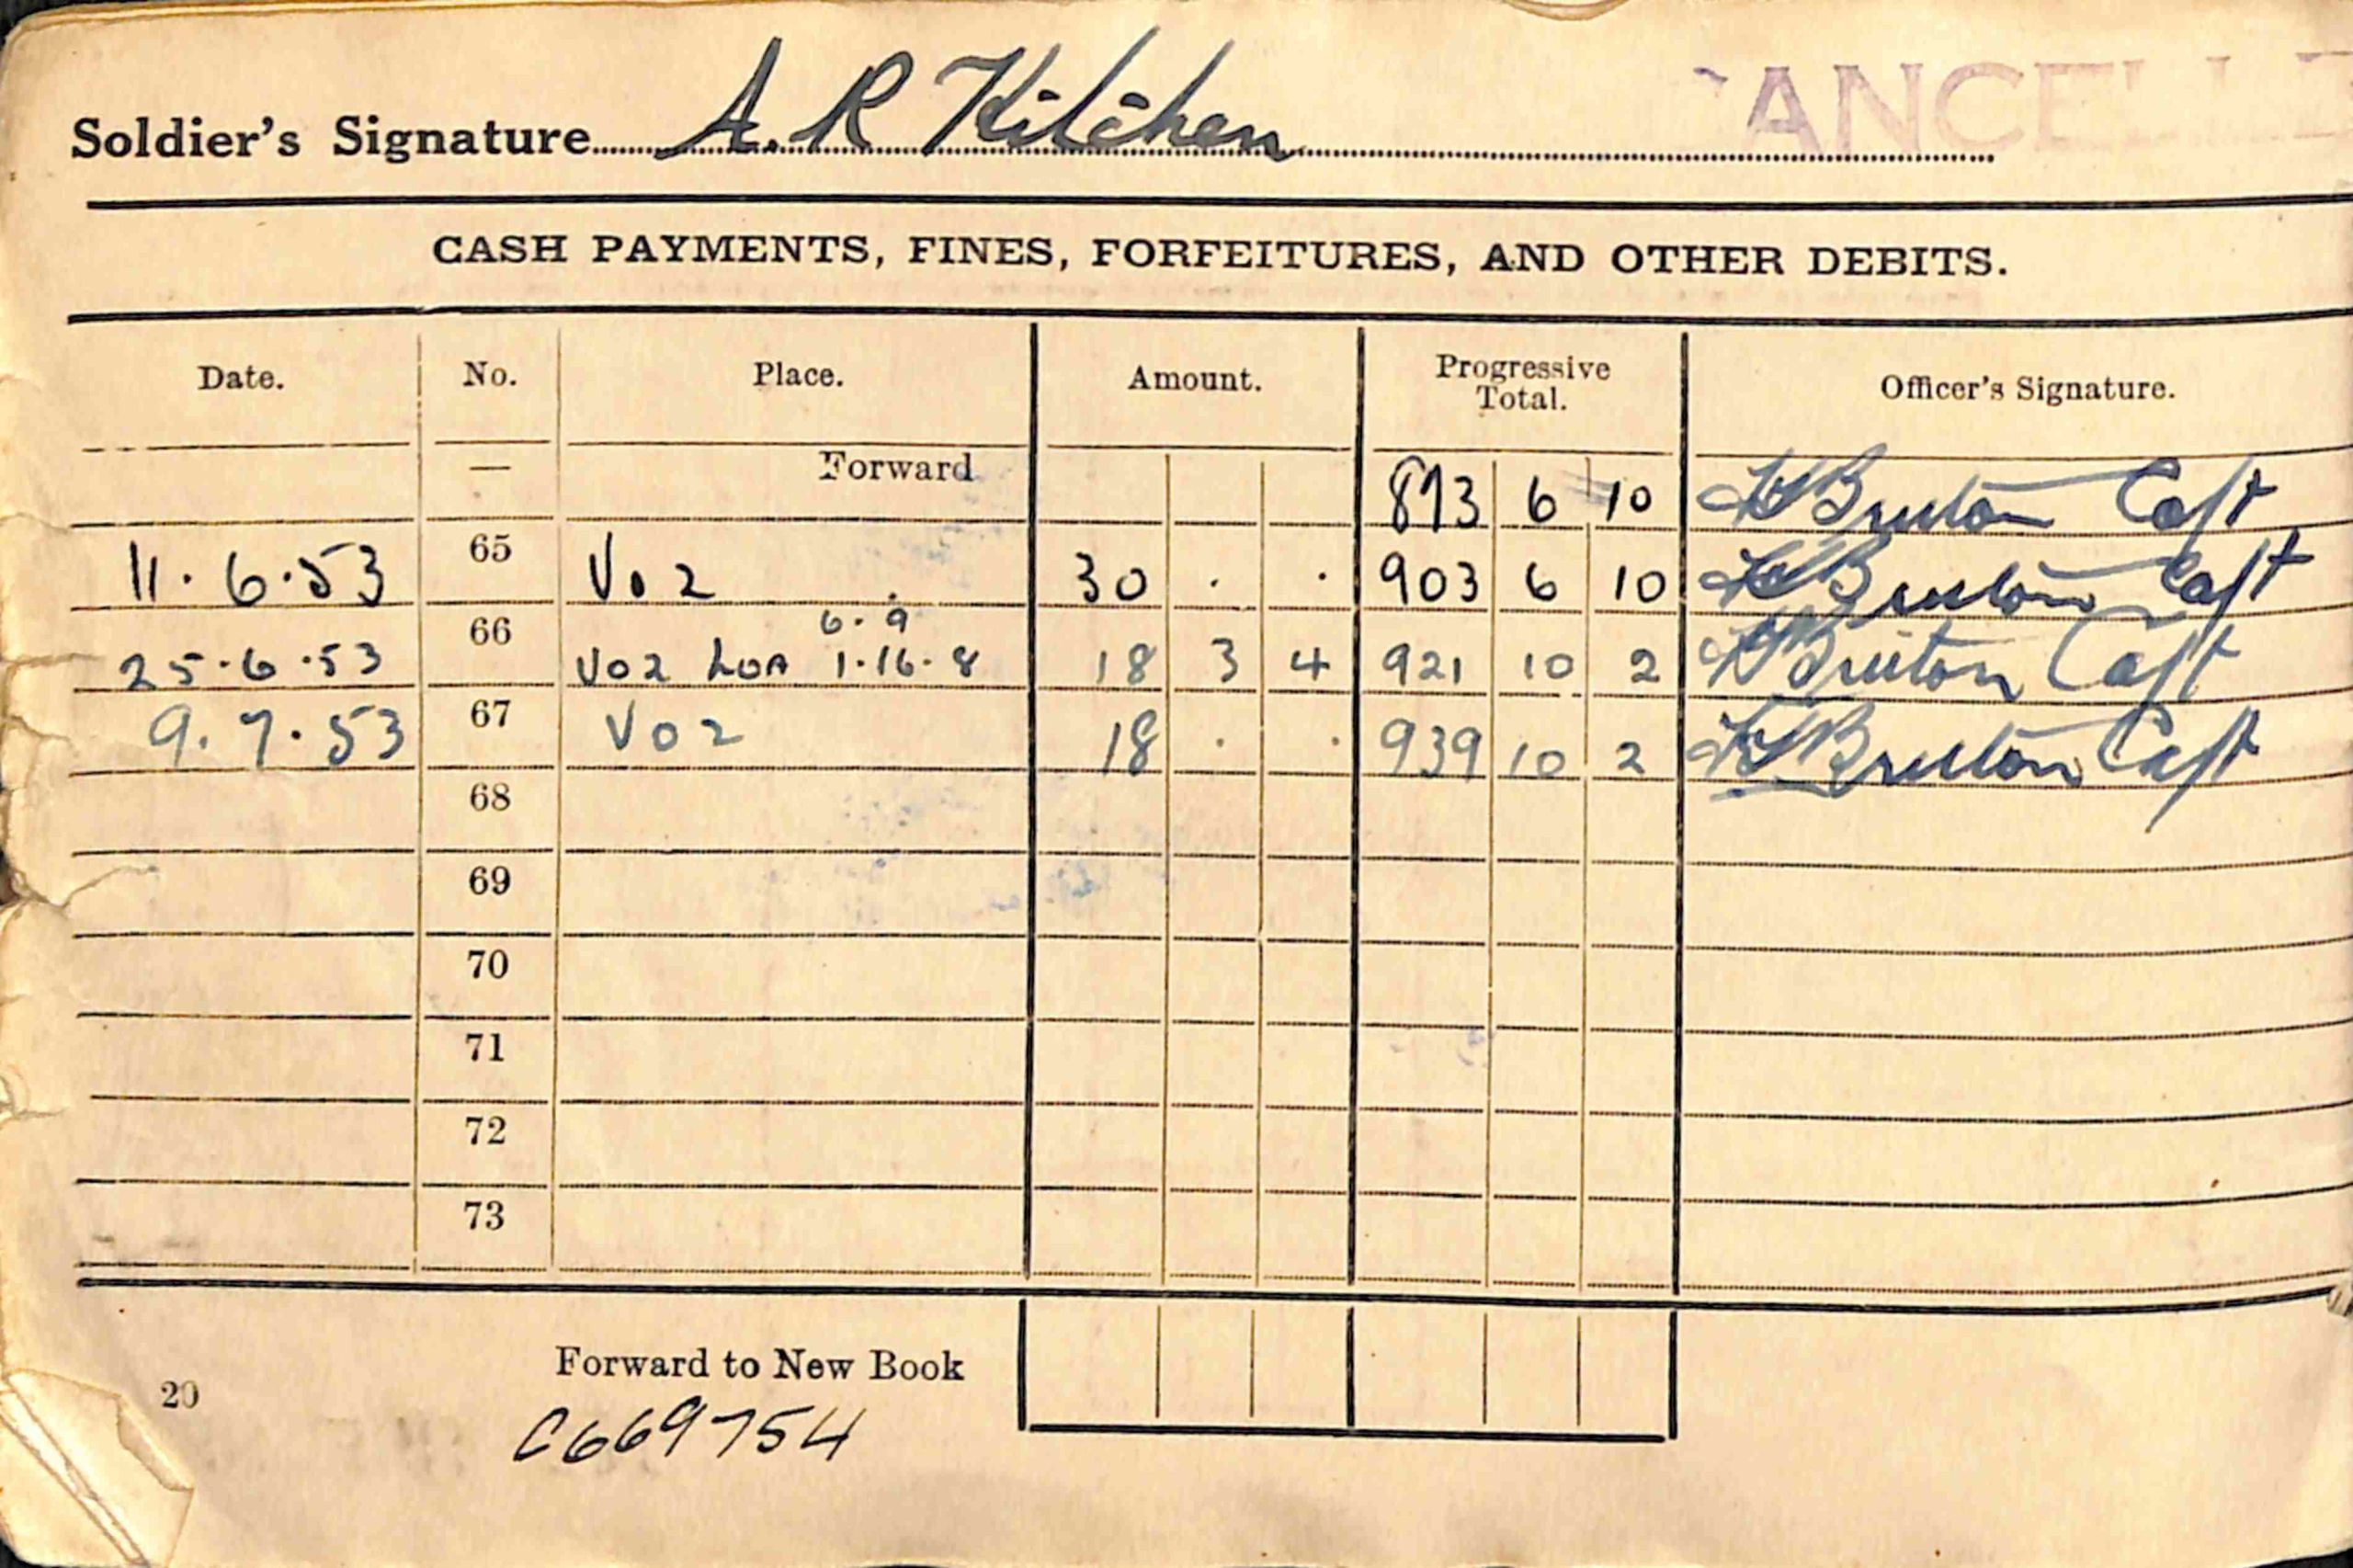 ANCELLE
Soldier's Signature A. R Kitchen
CASH PAYMENTS, FINES, FORFEITURES, AND OTHER DEBITS.
Date. No. Place. Amount. Progressive Total. Officer's Signature.
— Forward 873 6 10 Bruton Capt
11.6.53 65 V02 30 . . 903 6 10 Bruton Capt
6.9
25.6.53 66 V02 LOA 1.16.8 18 3 4 921 10 2 Bruton Capt
9.7.53 67 V02 18 . . 939 10 2 Bruton Capt
68
69
70
71
72
73
Forward to New Book
20
C669754